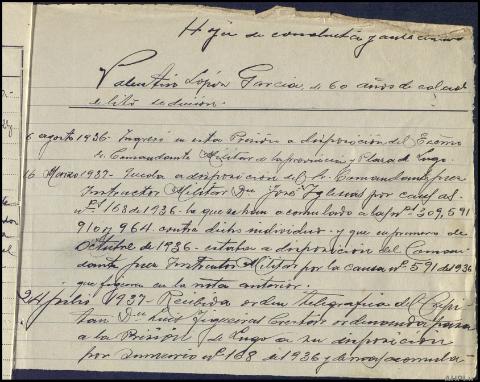 Hoja de conducta y antecedentes
Valentin López García, de 60 años de edad
delito de
6 agosto 1936- Ingresó en esta Prision a disposicion del Excmo
Sr. Comandante Militar de la provincia y Plaza de Lugo.
16 Marzo 1937- Queda a disposicion del Sr. Comandante Juez
Instructor Militar Dn José Iglesias por causa
nº 168 de 1936- la que se han acumulado a las nos 309, 591
910 y 964 contra dicho individuo- y que en primero de
Octubre de 1936- estaba a disposicion del Coman-
dante Juez Instructor Militar por la causa nº 591 de 1936
que figura en la nota anterior.
24 julio 1937- Recibida orden telegrafica del Capi-
tan Dn Luis Figueiras ordenando pase
a la Prisión de Lugo a su disposicion
por sumario nº 168 de 1936 y demas acumula-